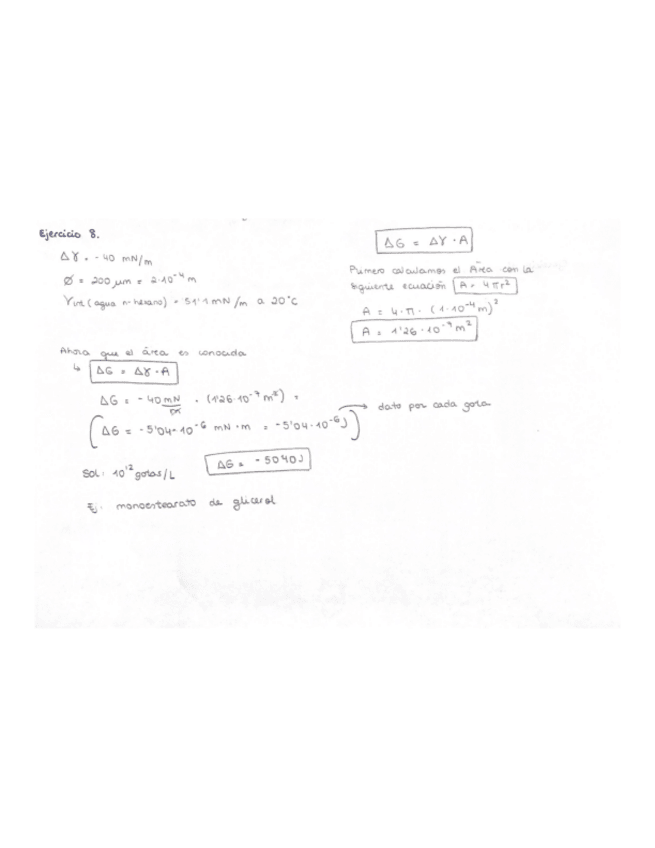 Ejercicio 8.
Δγ = -40 mN/m
Ø = 200 μm = 2·10⁻⁴ m
γint (agua n-hexano) = 51'1 mN/m a 20°C
ΔG = Δγ · A
Primero calculamos el Área con la
siguiente ecuación A = 4πr²
A = 4·π·(1·10⁻⁴m)²
A = 1'26·10⁻⁷ m²
Ahora que el área es conocida
↳ ΔG = Δγ·A
ΔG = -40 mN/m · (1'26·10⁻⁷ m²) =
(ΔG = -5'04·10⁻⁶ mN·m = -5'04·10⁻⁶J) → dato por cada gota
Sol: 10¹² gotas/L ΔG = -5040J
Ej: monoestearato de glicerol